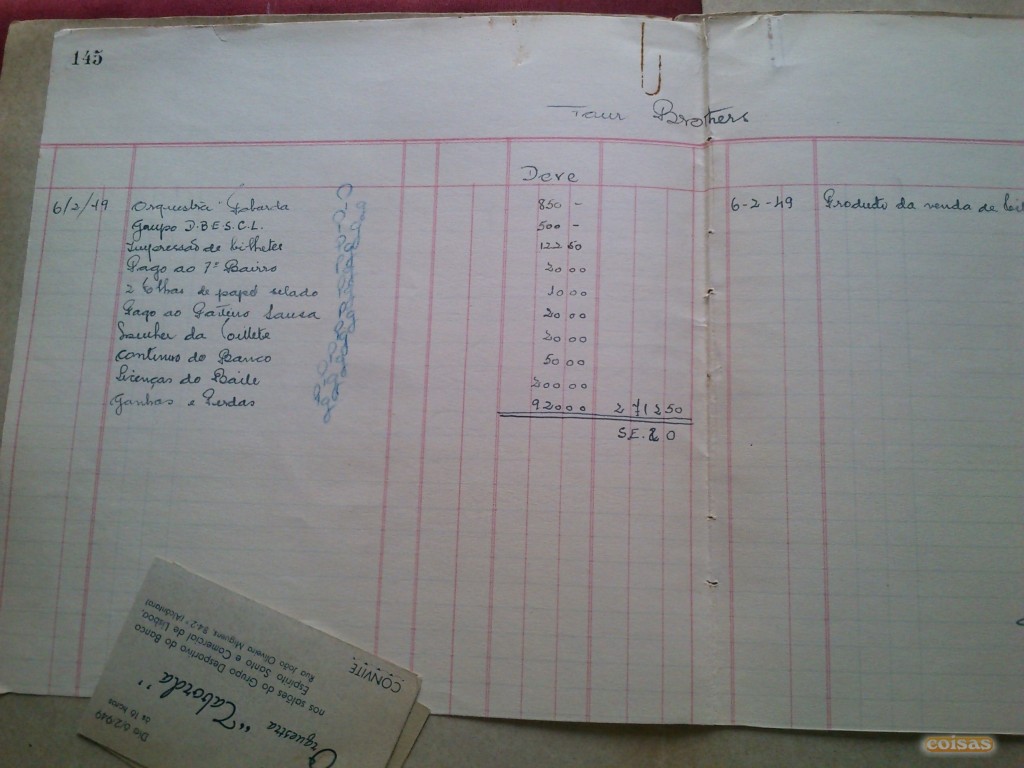 145
Four Brothers
Deve
6/2/49 Orquestra "Taborda" 850 -
Grupo D.B.E.S.C.L. 500 -
Impressão de bilhetes 122 50
Pago ao 1º Bairro 20 00
2 folhas de papel selado 10 00
Pago ao Sousa 20 00
da toilete 20 00
Continuo do Banco 50 00
Licenças do Baile 200 00
Ganhos e Perdas 920 00 2 712 50
S.E. & O
6-2-49 Produto da venda de
CONVITE
Rua João Oliveira Miguens, 34-2.º (Alcântara)
Espírito Santo e Comercial de Lisboa,
nos salões do Grupo Desportivo do Banco
Orquestra "Taborda"
Dia 6/2/949
às 16 horas
coisas